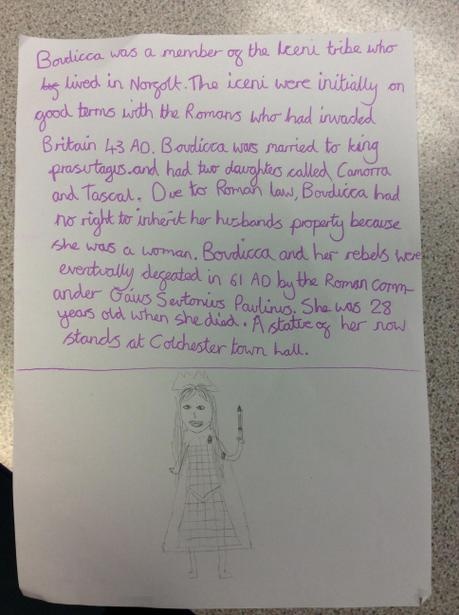 Boudicca was a member of the Iceni tribe who
lived in Norfolk. The iceni were initially on
good terms with the Romans who had invaded
Britain 43 AD. Boudicca was married to king
prasutagus.and had two daughters called Camorra
and Tascal. Due to Roman law, Boudicca had
no right to inherit her husbands property because
she was a woman. Boudicca and her rebels were
eventually defeated in 61 AD by the Roman comm-
ander Gaius Seutonius Paulinus. She was 28
years old when she died. A statue of her now
stands at Colchester town hall.